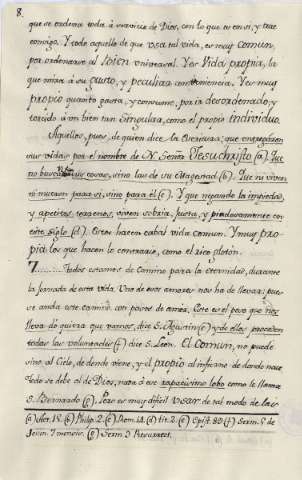 8.
que se ordena toda à servicio de Dios, con lo que es en si, y trae
consigo. Y todo aquello de que Usa tal vida, es muy Comun,
por ordenarse al Bien universal. Y es Vida propria, la
que mira à su gusto, y peculiar conveniencia. Y es muy
propio quanto gasta, y consume, por ir desordenado, y
torcido à un bien tan singular, como el propio Individuo.
Aquellos, pues, de quien dice la Escritura: que entregaron
sus vidas por el nombre de N. Señor Jesuchristo (a). Que
no buscan sus cosas, sino las de su Magestad (b). Que ni viven
ni mueren para si, sino para él (c). Y que negando la impiedad,
y apetitos terrenos, viven sobria, justa, y piadosamente en
este siglo (d). Estos hacen cabal vida Comun. Y muy pro-
pia los que hacen lo contrario, como el rico gloton.
7...... Todos estamos de Camino para la eternidad, durante
la Jornada de esta vida. Uno de estos amores nos ha de llevar; pues
se anda este Camino con pasos de amor. Este es el peso que nos
lleva do quiera que vamos, dice S. Agustin (e) y de ellos proceden
todas las voluntades (f) dice S. Leon. El Comun, no puede
sino al Cielo, de donde viene, y el propio al infierno de donde nace.
Todo se debe al de Dios, nada à ese rapacisimo lobo como le llama
S. Bernardo (g). Pero es muy dificil Usar de tal modo de la co
(a) Act. 15. (b) Philip. 2. (c) Rom. 14. (d) tit. 2. (e) Epist. 89. (f) Serm. 5. de
Jejun. 7. mensis. (g) Serm. 3. Resurrect.